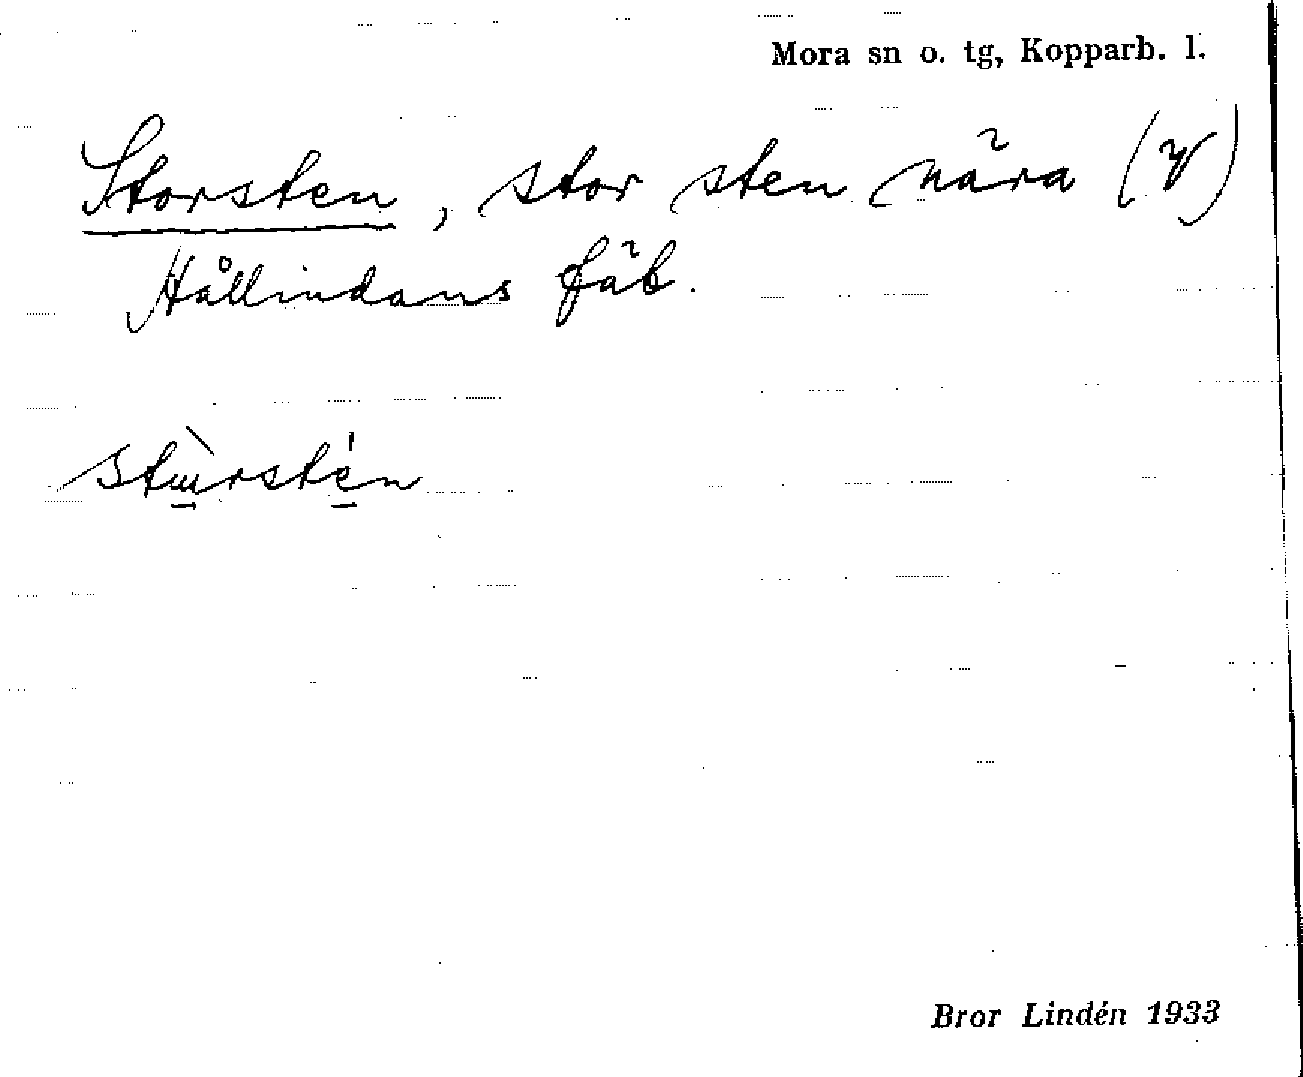 Mora sn o. tg, Kopparb. l.
Storsten, stor sten nära (y)
Hållindans fäb.
stùrstén
Bror Lindén 1933